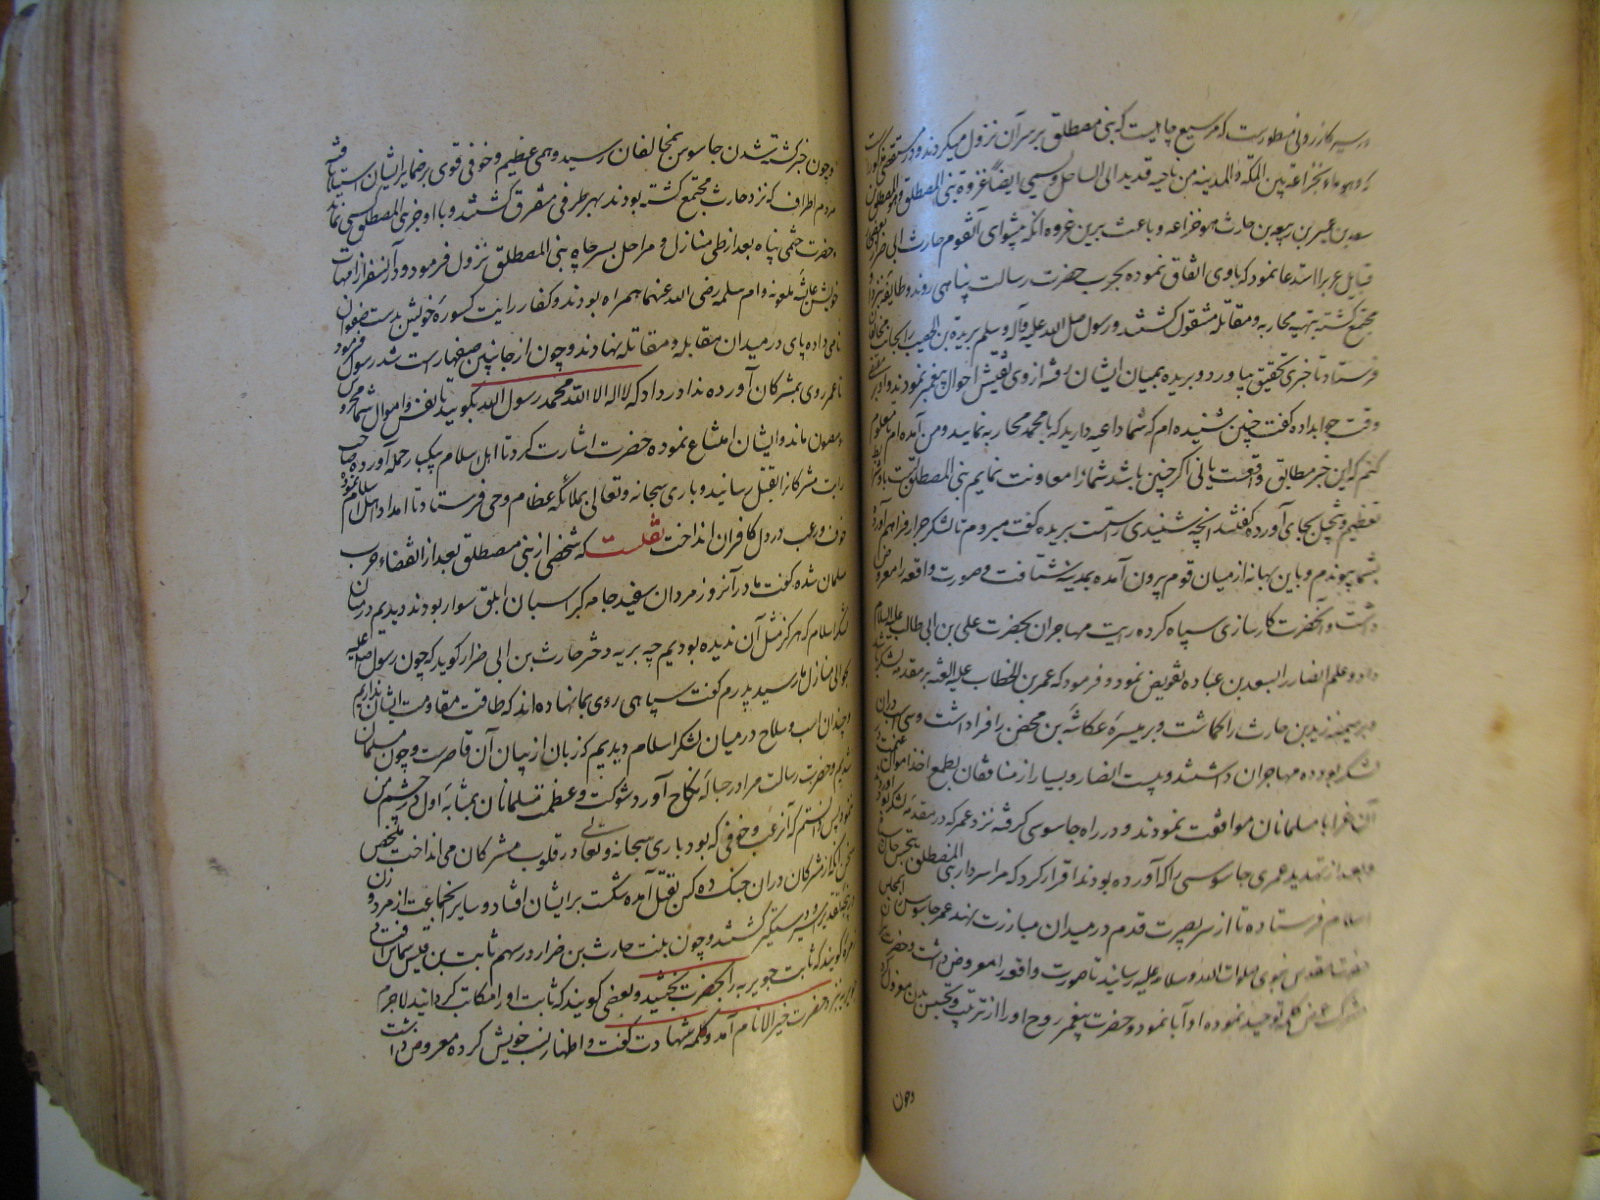 در سیر کازرونی مسطورست که مریسیع چاهیست که بنی مصطلق بر سر آن نزول میکردند و در
که و هو ماء لخزاعه بین المکة و المدینه من ناحیه قدید الی الساحل و یسمی ایضا غزوة بنی المصطلق و
سعد بن عمرو بن ربیعه بن حارثه هو خزاعه و باعث برین غزوه انکه پیشوای آنقوم حارث ابی ضرار
قبایل عرب را استدعا نمود که باوی اتفاق نموده بحرب حضرت رسالت پناهی روند و طایفه نزد او
مجتمع کشته بتهیه محاربه و مقاتله مشغول کشتند و رسول صلی الله علیه و آله و سلم بریدة بن الحصیب را بجانب
فرستاد تا خبری تحقیق بیاورد و بریده بمیان ایشان رفته از وی تفتیش احوال پیغمبر نمودند و او در
وقت جوابداده کفت چنین شنیده ام که شما داعیه دارید که با محمد محاربه نمایید و من آمده ام تا معلوم
کنم که این خبر مطابق واقعست یا نی اکر چنین باشد شما را معاونت نمایم بنی المصطلق
تعظیم و تبجیل بجای آورده کفتند انچه شنیدی راست بریده کفت میروم تا لشکر جرار فراهم آورده
بشما پیوندم و باین بهانه از میان قوم برون آمده بمدینه شتافت و صورت واقعه را معروض
داشت و آنحضرت کارسازی سپاه کرده رایت مهاجران بحضرت علی بن ابی طالب علیه السلام
داد و علم انصار را بسعد بن عباده تفویض نمود و فرمود که عمر بن الخطاب بر مقدمه لشکر باشد
و بر میمنه زید بن حارث را کماشت و بر میسره عکاشه بن محصن را افراد داشت و سی اسب در ان
لشکر بود ده مهاجران داشتند و بیست انصار و بسیار از منافقان بطمع اخذ اموال غنیمت در
آن غزا با مسلمانان موافقت نمودند و در راه جاسوسی کرفته نزد عمر که در مقدمه لشکر بود آوردند
و بعد از تهدید عمری جاسوسی را که آورده بودند اقرار کرد که مرا سردار بنی المصطلق بتجسس حال
اسلام فرستاده تا از سر بصیرت قدم در میدان مبارزت نهند عمر جاسوس را بمجلس
مقدس نبوی صلوات الله و سلامه علیه رسانید تا صورت واقعه را معروض داشت و حضرت
عرض کلمه توحید نموده او ابا نمود و حضرت پیغمبر روح او را از ترتیب و تجسس بدن
وچون
وچون خبر کشته شدن جاسوس بمخالفان رسید وهمی عظیم و خوفی قوی بر ضمایر ایشان استیلا یافت
مردم اطراف که نزد حارث مجتمع کشته بودند بهر طرفی متفرق کشتند و با او جز بنی المصطلق کسی نماند
حضرت ختمی پناه بعد از طی منازل و مراحل بسر چاه بنی المصطلق نزول فرمود و در آنسفر از امهات
عایشه و ام سلمه رضی الله عنهما همراه بودند و کفار رایت کسوره خویش بدست صفوان
نامی داده پای در میدان مقابله و مقاتله نهادند و چون از جانبین صفها راست شد رسول فرمود
تا عمر روی بمشرکان آورده ندا در داد که لا اله الا الله محمد رسول الله بکویید تا نفس و اموال شما محروس
و مصون ماند و ایشان امتناع نموده حضرت اشارت کرد تا اهل اسلام بیکبار حمله آورده صاحب
رایت مشرکانرا بقتل رسانید و باری سبحانه و تعالی بملائکه عظام وحی فرستاد تا امداد اهل اسلام نموده
خوف و رعب در دل کافران انداخت نقلست که شخصی از بنی مصطلق بعد از انقضاء حرب
مسلمان شده کفت ما در آنروز مردان سفید جامه که بر اسبان ابلق سوار بودند دیدیم در میان
لشکر اسلام که هرکز مثل آن ندیده بودیم جویریه دختر حارث بن ابی ضرار کوید که چون رسول صلی الله علیه
بحوالی منازل ما رسید پدرم کفت سپاهی روی بما نهاده اند که طاقت مقاومت ایشان نداریم
و چندان اسب و سلاح در میان لشکر اسلام دیدیم که زبان از بیان آن قاصرست و چون مسلمان
شدیم و حضرت رسالت مرا در حباله نکاح آورد شوکت و عظمت مسلمانان بمثابه اول در چشم من
ننمود پس دانستم که آن رعب و خوفی که بود باری سبحانه و تعالی در قلوب مشرکان می انداخت ملخص
سخن آنکه از مشرکان دران جنک ده کس بقتل آمده شکست بر ایشان افتاد و سایر آنجماعت از مرد و زن
اسیر و دستکیر کشتند و چون بنت حارث بن ضرار در سهم ثابت بن قیس شماس افتاد
زمره کویند که ثابت جویریه را بحضرت بخشید و بعضی کویند که ثابت او را مکاتب کردانید لاجرم
جویریه نزد حضرت خیر الانام آمد و کلمه شهادت کفت و اظهار نسب خویش کرده معروض داشت